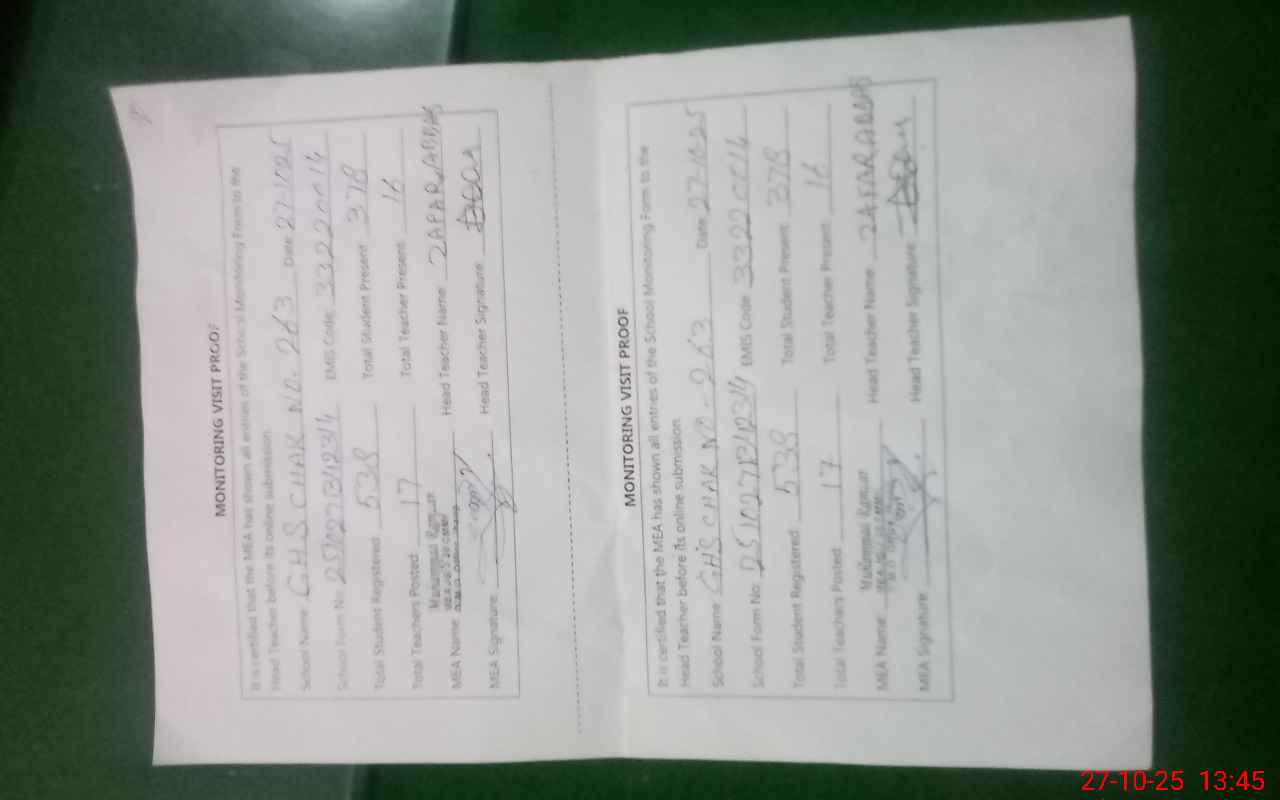 MONITORING VISIT PROOF
It is certified that the MEA has shown all entries of the School Monitoring Form to the
Head Teacher before its online submission.
School Name: GHS CHAK NO. 263 Date 27-10-25
School Form No: EMIS Code: 33220014
Total Student Registered: 538 Total Student Present: 378
Total Teachers Posted: 17 Total Teacher Present: 16
MEA Name: Head Teacher Name: ZAFAR ABBAS
MEA Signature: Head Teacher Signature:
MONITORING VISIT PROOF
It is certified that the MEA has shown all entries of the School Monitoring Form to the
Head Teacher before its online submission.
School Name: GHS CHAK NO. 263 Date 27-10-25
School Form No: EMIS Code: 33220014
Total Student Registered: 538 Total Student Present: 378
Total Teachers Posted: 17 Total Teacher Present: 16
MEA Name: Head Teacher Name: ZAFAR ABBAS
MEA Signature: Head Teacher Signature:
27-10-25 13:45